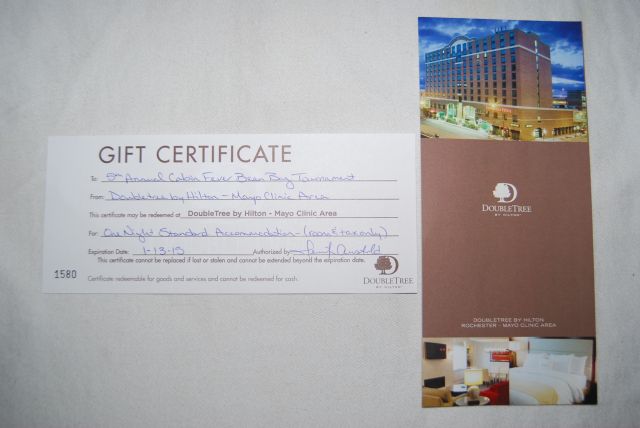 GIFT CERTIFICATE
To: 5th Annual Cabin Fever Bean Bag Tournament
From: Doubletree by Hilton - Mayo Clinic Area
This certificate may be redeemed at DoubleTree by Hilton - Mayo Clinic Area
For: One Night Standard Accommodation - (room & tax only)
Expiration Date: 1-13-15 Authorized by:
This certificate cannot be replaced if lost or stolen and cannot be extended beyond the expiration date.
1580
Certificate redeemable for goods and services and cannot be redeemed for cash.
DOUBLETREE
BY HILTON
DOUBLETREE
BY HILTON
DOUBLETREE BY HILTON
ROCHESTER - MAYO CLINIC AREA